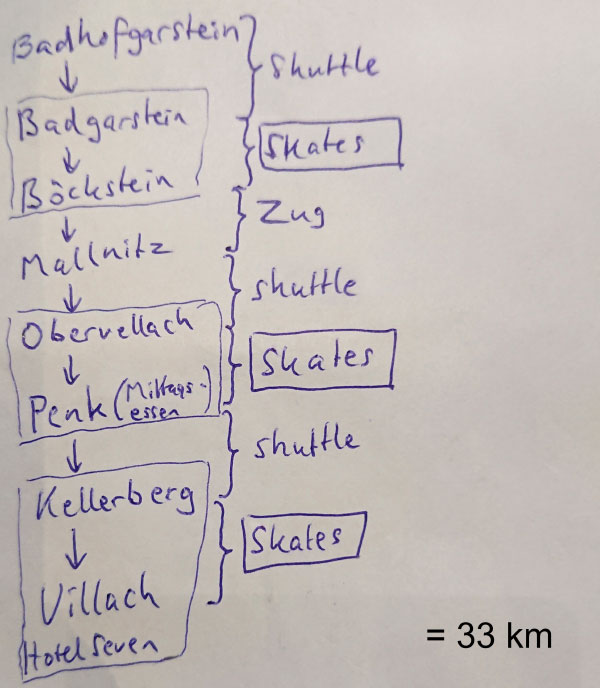 Badhofgarstein
↓
shuttle
Badgarstein
↓
Skates
Böckstein
↓
Zug
Mallnitz
↓
shuttle
Obervellach
↓
Skates
Penk (Mittags-
essen)
↓
shuttle
Kellerberg
↓
Skates
Villach
Hotel Seven
= 33 km